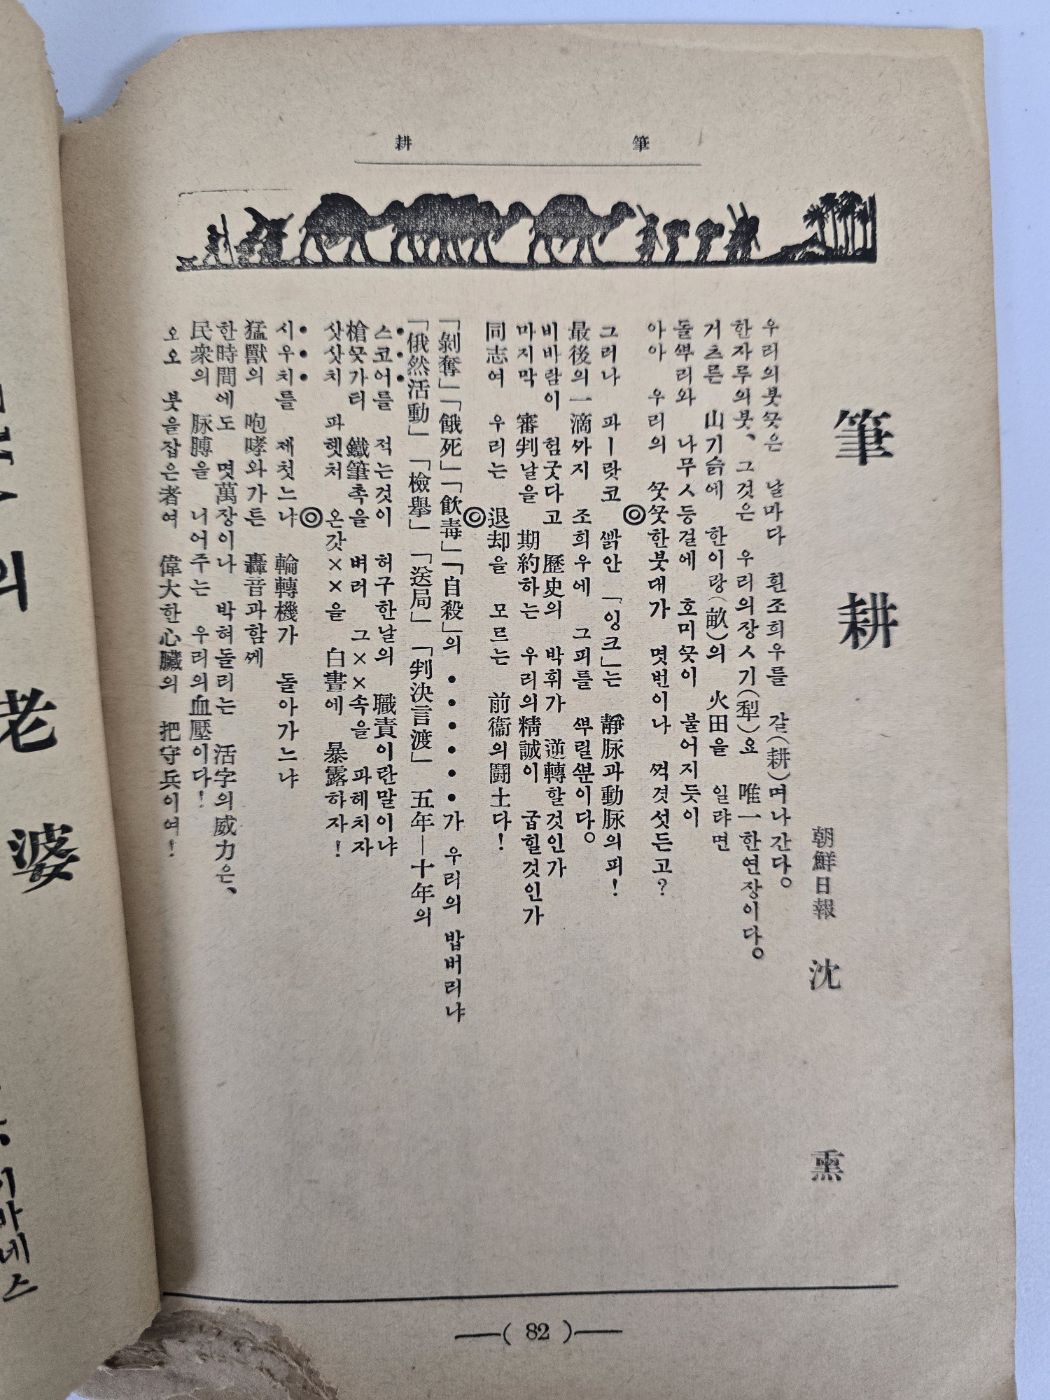 筆耕
筆耕
朝鮮日報 沈熏
우리의붓끗은 날마다 흰조희우를 갈(耕)며나간다。
한자루의붓、그것은 우리의장ㅅ기(犁)요 唯一한연장이다。
거츠른 山기슭에 한이랑(畝)의 火田을 일랴면
돌뿌리와 나무ㅅ등걸에 호미끗이 불어지듯이
아아 우리의 꿋꿋한붓대가 몃번이나 꺽겻섯든고?
◎
그러나 파ー랏코 빩안「잉크」는 靜脉과動脉의피!
最後의一滴까지 조희우에 그피를 뿌릴뿐이다。
비바람이 험굿다고 歷史의 박휘가 逆轉할것인가
마지막 審判날을 期約하는 우리의精誠이 굽힐것인가
同志여 우리는 退却을 모르는 前衛의鬪士다!
◎
「剝奪」「餓死」「飮毒」「自殺」의 ••••••가 우리의 밥버리냐
「俄然活動」「檢擧」「送局」「判決言渡」 五年—十年의
스코어를 적는것이 허구한날의 職責이란말이냐
槍끗가티 鐵筆촉을 벼려 그××속을 파헤치자
삿삿치 파헷처 온갓××을 白晝에 暴露하자!
◎
시우치를 제첫느냐 輪轉機가 돌아가느냐
猛獸의 咆哮와가튼 轟音과함께
한時間에도 몃萬장이나 박혀돌리는 活字의威力은、
民衆의 脉膊을 니어주는 우리의血壓이다!
오오 붓을잡은者여 偉大한心臟의 把守兵이여!
—( 82 )—
의
老
婆